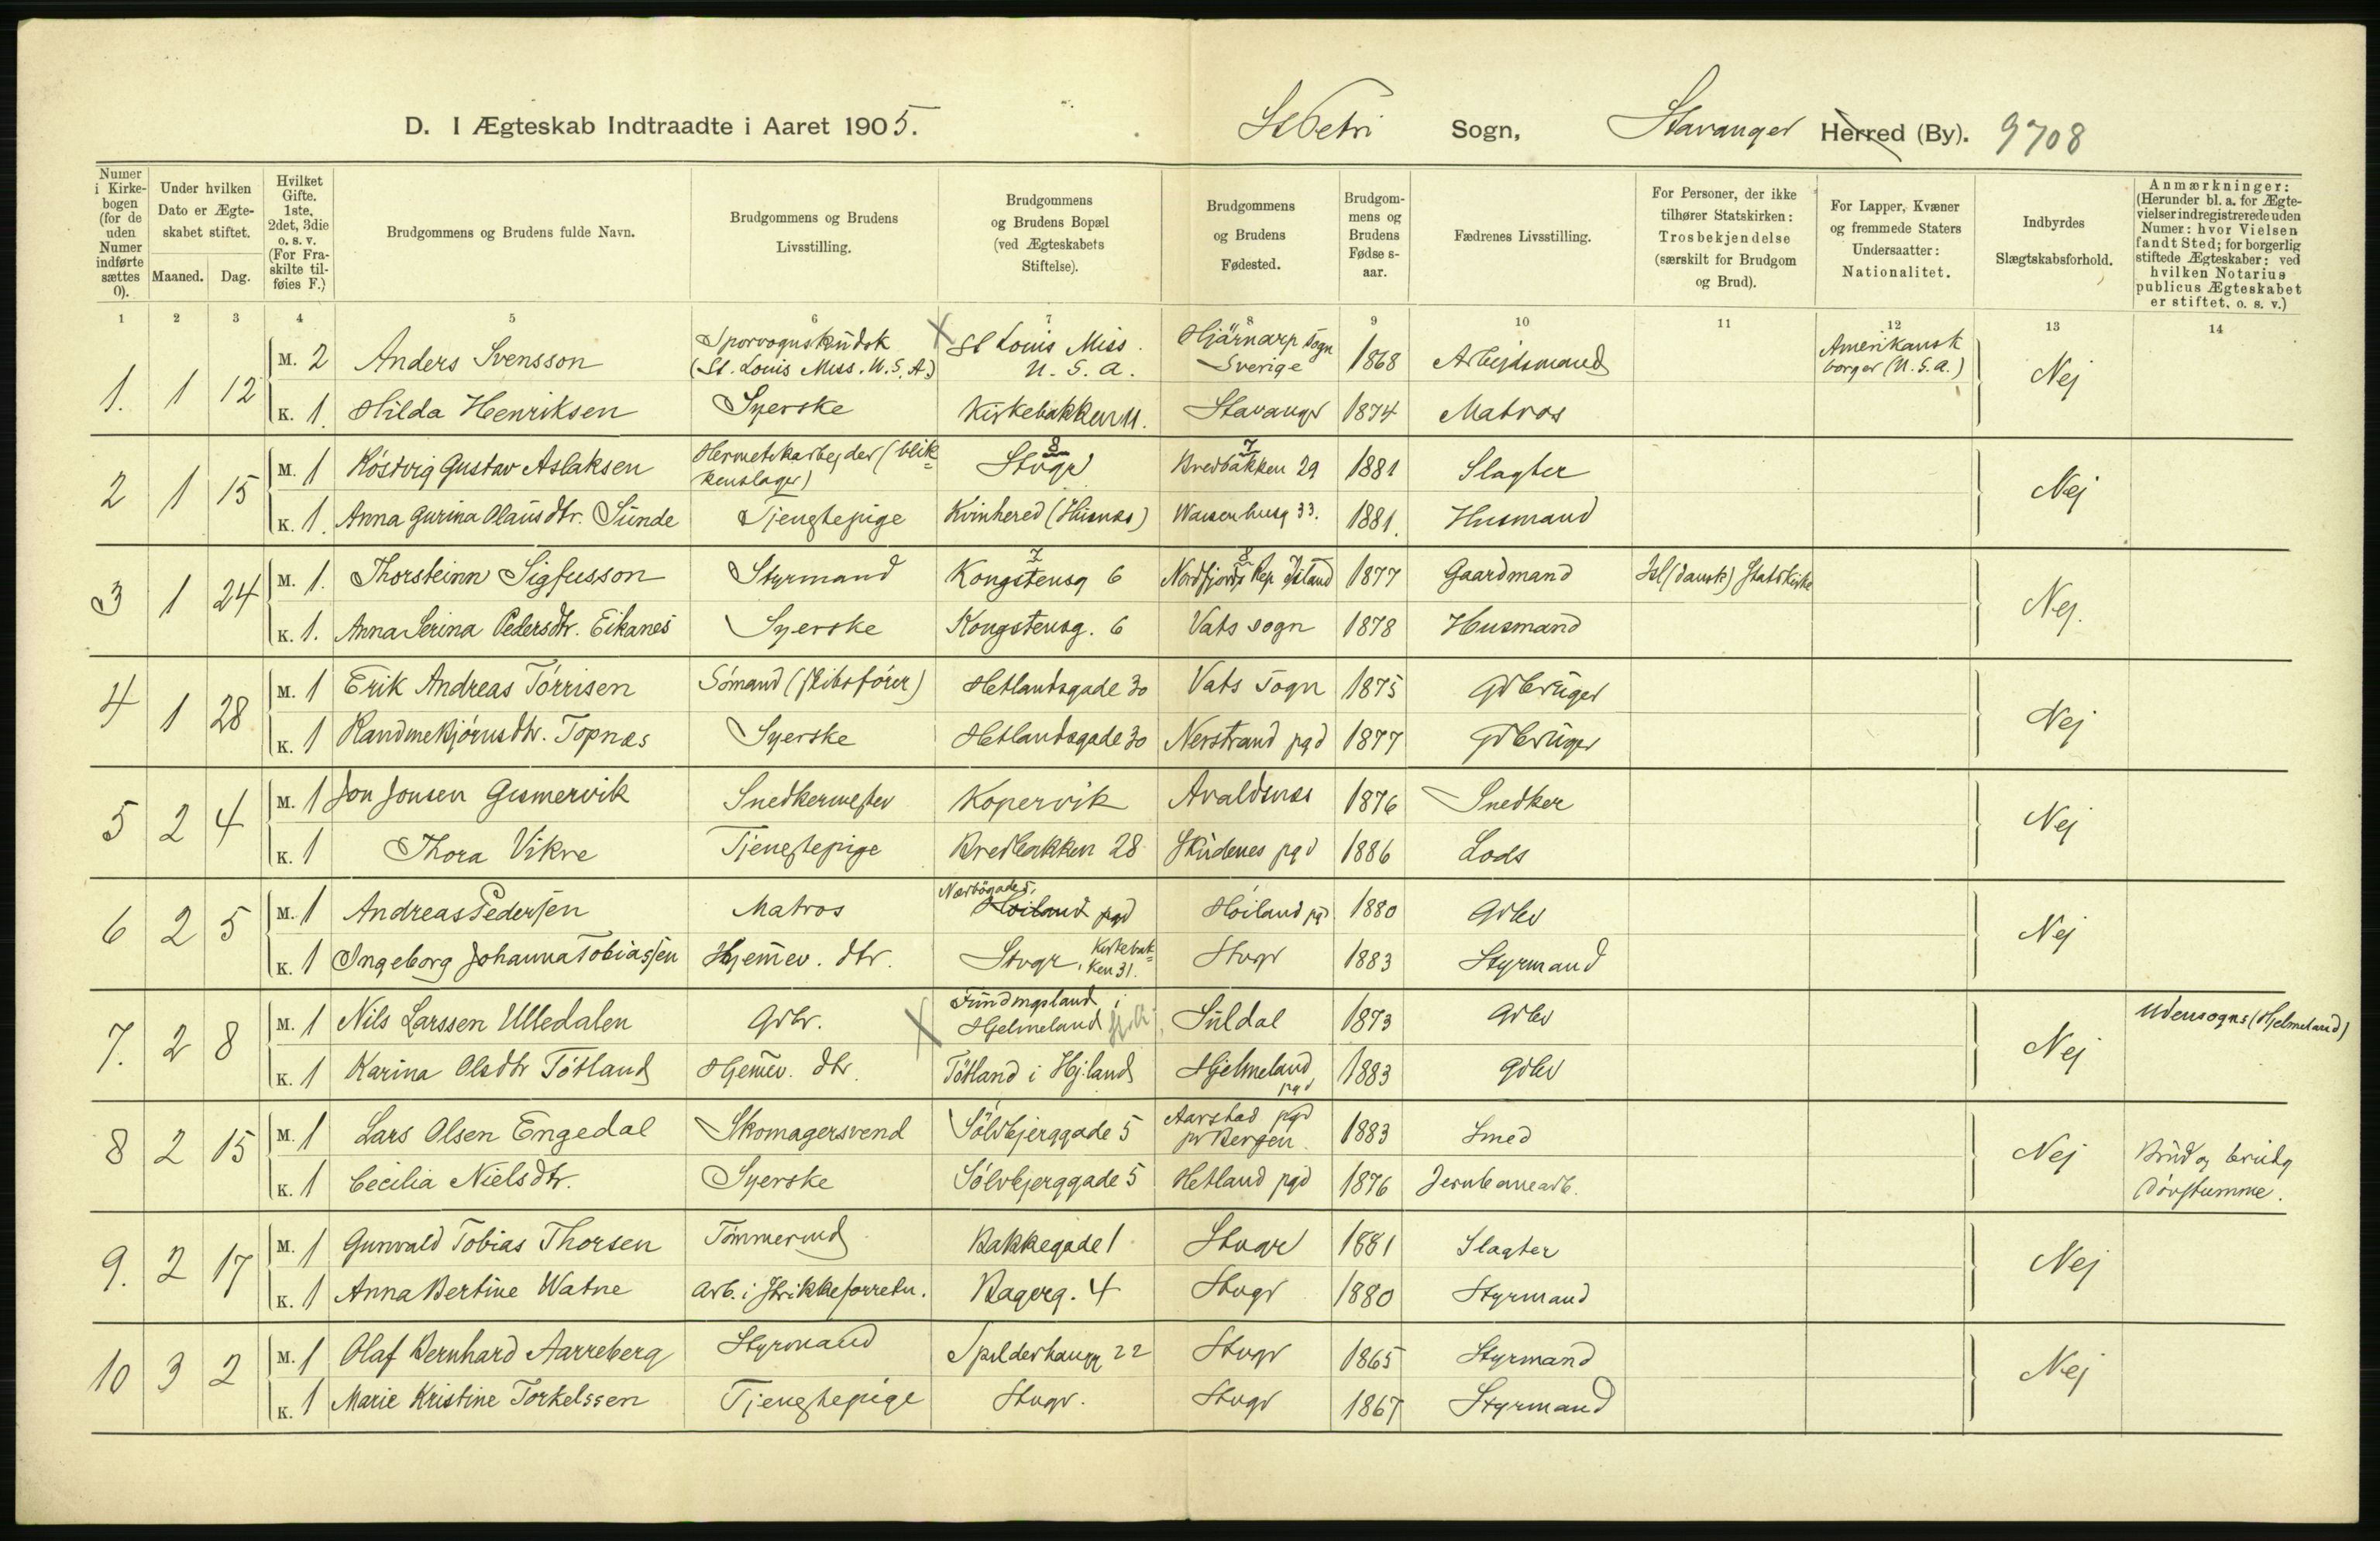 D. I Ægteskab Indtraadte i Aaret 1905.
St Petri Sogn, Stavanger Herred (By). 9708
Numer i Kirkebogen (for de uden Numer indførte sættes 0).
Under hvilken Dato er Ægteskabet stiftet. Maaned. Dag.
Hvilket Gifte. 1ste, 2det, 3die o. s. v. (For Fraskilte tilføies F.)
Brudgommens og Brudens fulde Navn.
Brudgommens og Brudens Livsstilling.
Brudgommens og Brudens Bopæl (ved Ægteskabets Stiftelse).
Brudgommens og Brudens Fødested.
Brudgommens og Brudens Fødselsaar.
Fædrenes Livsstilling.
For Personer, der ikke tilhører Statskirken: Trosbekjendelse (særskilt for Brudgom og Brud).
For Lapper, Kvæner og fremmede Staters Undersaatter: Nationalitet.
Indbyrdes Slægtskabsforhold.
Anmærkninger: (Herunder bl. a. for Ægtevielser indregistrerede uden Numer: hvor Vielsen fandt Sted; for borgerlig stiftede Ægteskaber: ved hvilken Notarius publicus Ægteskabet er stiftet, o. s. v.)
1 2 3 4 5 6 7 8 9 10 11 12 13 14
1. 1 12 M. 2 Anders Svensson Sporvognskudsk (St. Louis Miss. U.S.A.) St Louis Miss. U.S.A. Hjärnarp sogn Sverige 1868 Arbejdsmand Amerikansk borger (U.S.A.) Nej
K. 1. Hilda Henriksen Syerske Kirkebakken 11. Stavanger 1874 Matros
2 1 15 M. 1 Röstvig Gustav Aslaksen Hermetikarbejder (blikkenslager) 8 Stvgr 7 Bredbakken 29 1881 Slagter Nej
K. 1. Anna Gurina Olausdtr. Sunde Tjenestepige Kvinhered (Husnæs) Waisenhusg 33. 1881. Husmand
3 1 24 M. 1. Thorsteinn Sigfusson Styrmand 7 Kongstensg 6 8 Nordfjords Rep Island 1877 Gaardmand Isl (dansk) Statskirke Nej.
K. 1. Anna Serina Pedersdtr. Eikanes Syerske Kongstensg. 6 Vats sogn 1878 Husmand
4 1 28 M. 1 Erik Andreas Törrisen Sömand (skibsförer) Hetlandsgade 30 Vats sogn 1875 Gdbruger Nej
K. 1 Randine Bjørnsdtr. Topnæs Syerske Hetlandsgade 30 Nerstrand pgd 1877 Gdbruger
5 2 4 M. 1 Jon Jonsen Gismervik Snedkermester Kopervik Avaldsnæs 1876 Snedker Nej
K. 1 Thora Vikre Tjenestepige Bredbakken 28 Skudenes pgd 1886 Lods
6 2 5 M. 1 Andreas Pedersen Matros Nærbögade 5, Höiland pgd Höiland pgd. 1880 Gdbr Nej
K. 1 Ingeborg Johanna Tobiassen Hjemmev. dtr. Stvgr, Kirkebakken 31. Stvgr 1883 Styrmand
7. 2 8 M. 1 Nils Larssen Ulledalen Gdbr. Fundingsland i Hjelmeland Suldal 1873 Gdbr Nej Udensogns (Hjelmeland)
K. 1 Karina Olsdtr Tötland Hjemmev. dtr. Tötland i Hj.land Hjelmeland pgd 1883 Gdbr
8 2 15 M. 1 Lars Olsen Engedal Skomagersvend Sölvbjerggade 5 Aarstad pgd pr Bergen. 1883 Smed Nej Brud og brudg døvstumme.
K. 1 Cecilia Nielsdtr. Syerske Sölvbjerggade 5 Hetland pgd 1876 Jernbanearb.
9. 2 17 M. 1 Gunvald Tobias Thorsen Tömmermd Bakkegade 1 Stvgr 1881 Slagter Nej
K. 1 Anna Bertine Watne Arb. i Strikkeforretn. Bagerg. 4 Stvgr 1880 Styrmand
10 3 2 M. 1 Olaf Bernhard Aarreberg Styrmand Spilderhaugg 22 Stvgr 1865 Styrmand Nej
K. 1 Marie Kristine Torkelssen Tjenestepige Stvgr. Stvgr 1867 Styrmand